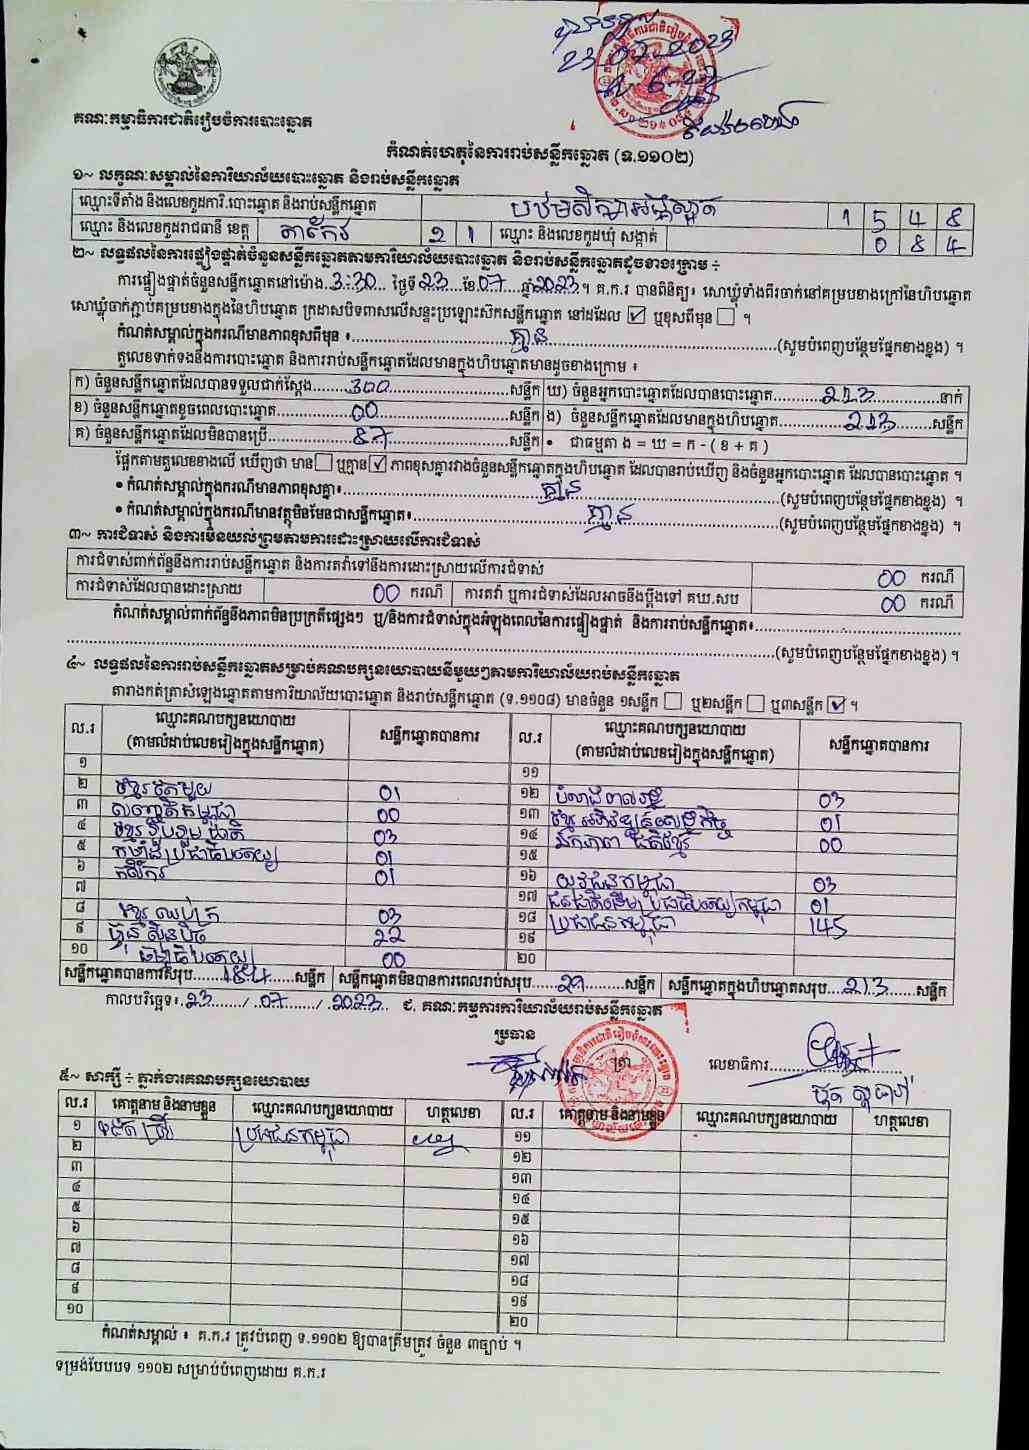 23.07.2023
គណៈកម្មាធិការជាតិរៀបចំការបោះឆ្នោត
កំណត់ហេតុនៃការរាប់សន្លឹកឆ្នោត (ទ.១១០២)
១~ លក្ខណៈសម្គាល់នៃការិយាល័យបោះឆ្នោត និងរាប់សន្លឹកឆ្នោត
ឈ្មោះទីតាំង និងលេខកូដការិ.បោះឆ្នោត និងរាប់សន្លឹកឆ្នោត 1 5 4 8
ឈ្មោះ និងលេខកូដរាជធានី ខេត្ត តាកែវ 2 1 ឈ្មោះ និងលេខកូដឃុំ សង្កាត់ 0 8 4
២~ លទ្ធផលនៃការផ្ទៀងផ្ទាត់ចំនួនសន្លឹកឆ្នោតតាមការិយាល័យបោះឆ្នោត និងរាប់សន្លឹកឆ្នោតដូចខាងក្រោម ÷
ការផ្ទៀងផ្ទាត់ចំនួនសន្លឹកឆ្នោតនៅម៉ោង 3:30 ថ្ងៃទី 23 ខែ 07 ឆ្នាំ 2023 ។ គ.ក.រ បានពិនិត្យ៖ សោឃ្លុំទាំងពីរចាក់នៅគម្របខាងក្រៅនៃហិបឆ្នោត
សោឃ្លុំចាក់ភ្ជាប់គម្របខាងក្នុងនៃហិបឆ្នោត ក្រដាសបិទពាសលើសន្ទះប្រឡោះស៊កសន្លឹកឆ្នោត នៅដដែល ☑ ឬខុសពីមុន ☐ ។
កំណត់សម្គាល់ក្នុងករណីមានភាពខុសពីមុន ៖ គ្មាន (សូមបំពេញបន្ថែមផ្នែកខាងខ្នង) ។
តួលេខទាក់ទងនឹងការបោះឆ្នោត និងការរាប់សន្លឹកឆ្នោតដែលមានក្នុងហិបឆ្នោតមានដូចខាងក្រោម ៖
ក) ចំនួនសន្លឹកឆ្នោតដែលបានទទួលជាក់ស្តែង 300 សន្លឹក ឃ) ចំនួនអ្នកបោះឆ្នោតដែលបានបោះឆ្នោត 213 នាក់
ខ) ចំនួនសន្លឹកឆ្នោតខូចពេលបោះឆ្នោត 00 សន្លឹក ង) ចំនួនសន្លឹកឆ្នោតដែលមានក្នុងហិបឆ្នោត 213 សន្លឹក
គ) ចំនួនសន្លឹកឆ្នោតដែលមិនបានប្រើ 87 សន្លឹក • ជាធម្មតា ង = ឃ = ក - ( ខ + គ )
ផ្អែកតាមតួលេខខាងលើ ឃើញថា មាន ☐ ឬគ្មាន ☑ ភាពខុសគ្នារវាងចំនួនសន្លឹកឆ្នោតក្នុងហិបឆ្នោត ដែលបានរាប់ឃើញ និងចំនួនអ្នកបោះឆ្នោត ដែលបានបោះឆ្នោត ។
• កំណត់សម្គាល់ក្នុងករណីមានភាពខុសគ្នា៖ គ្មាន (សូមបំពេញបន្ថែមផ្នែកខាងខ្នង) ។
• កំណត់សម្គាល់ក្នុងករណីមានវត្ថុមិនមែនជាសន្លឹកឆ្នោត៖ គ្មាន (សូមបំពេញបន្ថែមផ្នែកខាងខ្នង) ។
៣~ ការជំទាស់ និងការមិនយល់ព្រមតាមការដោះស្រាយលើការជំទាស់
ការជំទាស់ពាក់ព័ន្ធនឹងការរាប់សន្លឹកឆ្នោត និងការតវ៉ាទៅនឹងការដោះស្រាយលើការជំទាស់ 00 ករណី
ការជំទាស់ដែលបានដោះស្រាយ 00 ករណី ការតវ៉ា ឬការជំទាស់ដែលអាចនឹងប្តឹងទៅ គឃ.សប 00 ករណី
កំណត់សម្គាល់ពាក់ព័ន្ធនឹងភាពមិនប្រក្រតីផ្សេងៗ ឬ/និងការជំទាស់ក្នុងអំឡុងពេលនៃការផ្ទៀងផ្ទាត់ និងការរាប់សន្លឹកឆ្នោត៖
(សូមបំពេញបន្ថែមផ្នែកខាងខ្នង) ។
៤~ លទ្ធផលនៃការរាប់សន្លឹកឆ្នោតសម្រាប់គណបក្សនយោបាយនីមួយៗតាមការិយាល័យរាប់សន្លឹកឆ្នោត
តារាងកត់ត្រាសំឡេងឆ្នោតតាមការិយាល័យបោះឆ្នោត និងរាប់សន្លឹកឆ្នោត (ទ.១១០៨) មានចំនួន ១សន្លឹក ☐ ឬ២សន្លឹក ☐ ឬ៣សន្លឹក ☑ ។
ល.រ ឈ្មោះគណបក្សនយោបាយ (តាមលំដាប់លេខរៀងក្នុងសន្លឹកឆ្នោត) សន្លឹកឆ្នោតបានការ ល.រ ឈ្មោះគណបក្សនយោបាយ (តាមលំដាប់លេខរៀងក្នុងសន្លឹកឆ្នោត) សន្លឹកឆ្នោតបានការ
១ ១១
២ ខ្មែរតែមួយ 01 ១២ 03
៣ 00 ១៣ 01
៤ 03 ១៤ ឯកភាពជាតិខ្មែរ 00
៥ កម្លាំងប្រជាធិបតេយ្យ 01 ១៥
៦ កសិករ 01 ១៦ យុវជនកម្ពុជា 03
៧ ១៧ ជនជាតិដើមប្រជាធិបតេយ្យកម្ពុជា 01
៨ ខ្មែរឈប់ក្រ 03 ១៨ ប្រជាជនកម្ពុជា 145
៩ ហ៊្វុនស៊ិនប៉ិច 22 ១៩
១០ 00 ២០
សន្លឹកឆ្នោតបានការសរុប 184 សន្លឹក សន្លឹកឆ្នោតមិនបានការពេលរាប់សរុប 29 សន្លឹក សន្លឹកឆ្នោតក្នុងហិបឆ្នោតសរុប 213 សន្លឹក
កាលបរិច្ឆេទ៖ 23 / 07 / 2023 ជ. គណៈកម្មការការិយាល័យរាប់សន្លឹកឆ្នោត
ប្រធាន ត្រា លេខាធិការ
៥~ សាក្សី ÷ ភ្នាក់ងារគណបក្សនយោបាយ
ល.រ គោត្តនាម និងនាមខ្លួន ឈ្មោះគណបក្សនយោបាយ ហត្ថលេខា ល.រ គោត្តនាម និងនាមខ្លួន ឈ្មោះគណបក្សនយោបាយ ហត្ថលេខា
១ ប្រជាជនកម្ពុជា ១១
២ ១២
៣ ១៣
៤ ១៤
៥ ១៥
៦ ១៦
៧ ១៧
៨ ១៨
៩ ១៩
១០ ២០
កំណត់សម្គាល់ ៖ គ.ក.រ ត្រូវបំពេញ ទ.១១០២ ឱ្យបានត្រឹមត្រូវ ចំនួន ៣ច្បាប់ ។
ទម្រង់បែបបទ ១១០២ សម្រាប់បំពេញដោយ គ.ក.រ